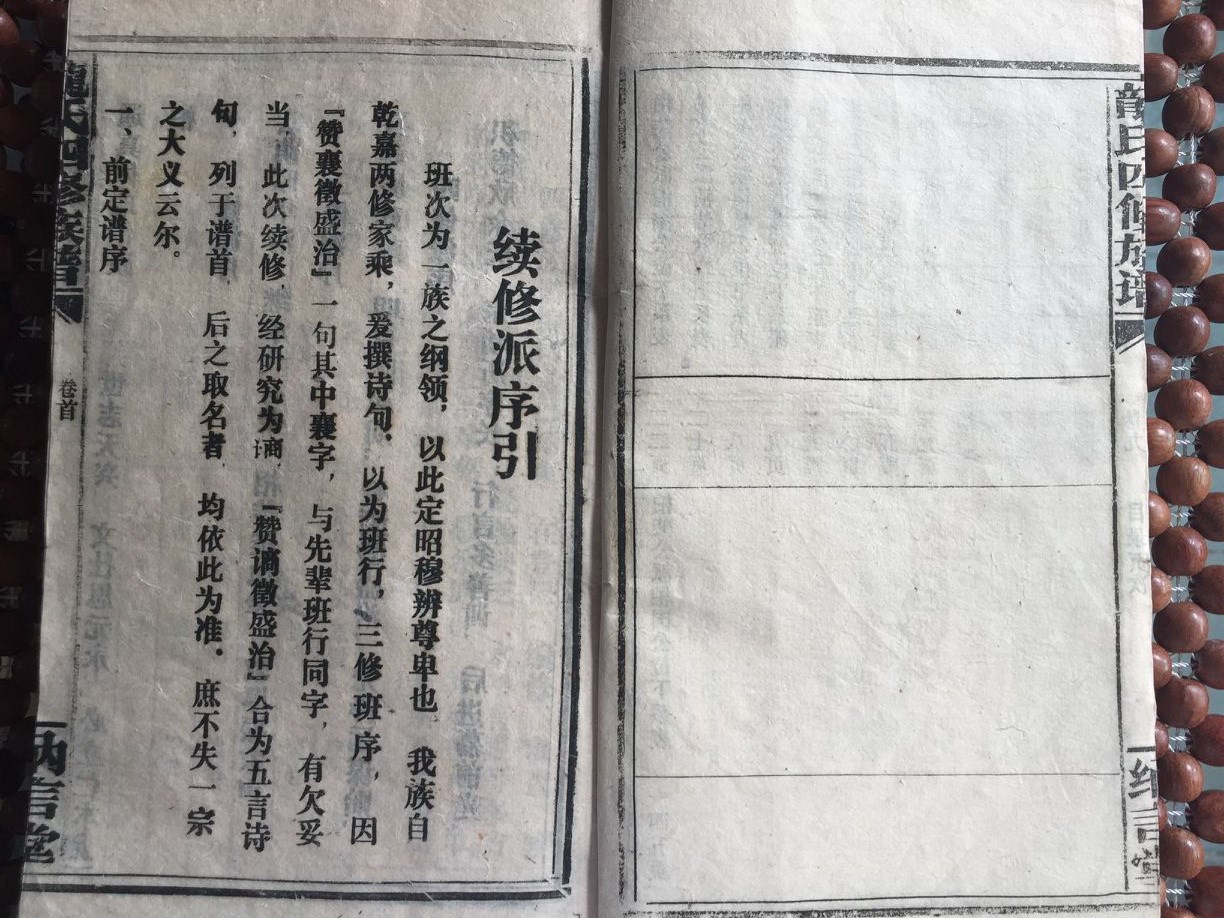 续修派序引
班次为一族之纲领，以此定昭穆辨尊卑也 我族自
乾嘉两修家乘，爰撰诗句、以为班行，三修班序，因
『赞襄徵盛治』一句其中襄字，与先辈班行同字，有欠妥
当，此次续修，经研究为谪，『赞谪徵盛治』合为五言诗
句，列于谱首，后之取名者，均依此为准，庶不失一宗
之大义云尔。
一、前定谱序
龍氏四修族谱
卷首
纳言堂
龍氏四修族谱
纳言堂